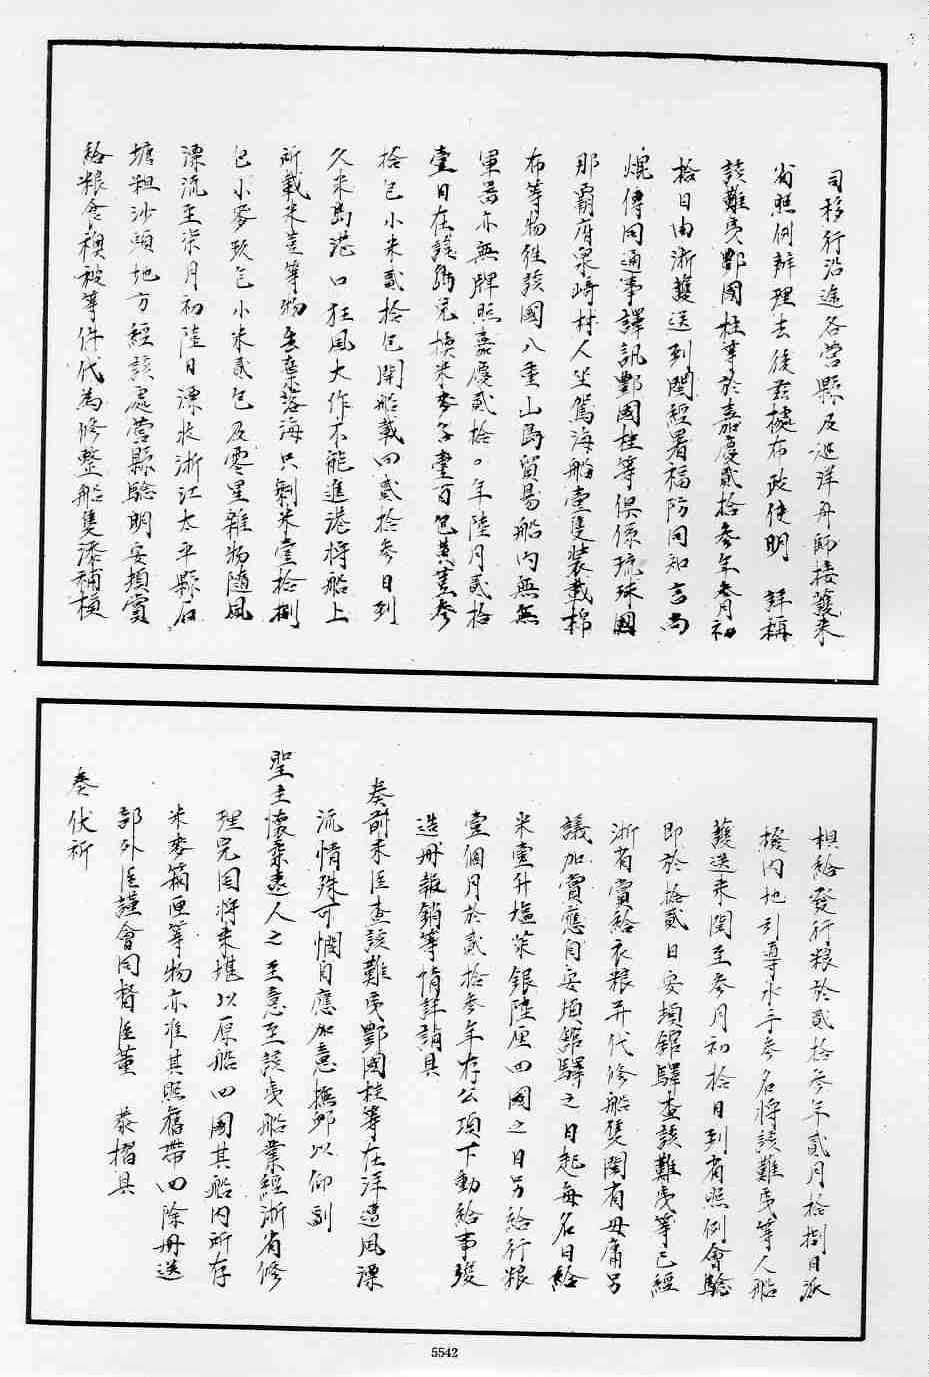 司移行沿途各營縣及巡洋舟師接護來
省照例辦理去後茲據布政使明　詳稱
該難夷鄷國柱等於嘉慶貳拾參年叁月初
拾日由浙護送到閩經署福防同知言尚
焜傳同通事譯訊鄷國柱等俱係琉球國
那霸府泉崎村人坐駕海船壹隻裝載棉
布等物往該國八重山島貿易船內無
軍器亦無牌照嘉慶貳拾。年陸月貳拾
壹日在該島兌換米麥子壹百包黃荳參
拾包小米貳拾包開船載回貳拾參日到
久米島港口狂風大作不能進港將船上
所載米荳等物盡棄落海只剩米壹拾捌
包小麥玖包小米貳包及零星雜物隨風
漂流至柒月初陸日漂收浙江太平縣石
塘粗沙頭地方經該處營縣驗明安頓賞
給糧食襖被等件代為修整船隻漆補槓
椇給發行糧於貳拾參年貳月拾捌日派
撥內地引導水手參名將該難夷等人船
護送來閩至參月初拾日到省照例會驗
即於拾貳日安頓館驛查該難夷等已經
浙省賞給衣糧并代修船隻閩省毋庸另
議加賞應自安頓館驛之日起每名日給
米壹升塩菜銀陸厘回國之日另給行糧
壹個月於貳拾參年存公項下動給事竣
造冊報銷等情詳請具
奏前來臣查該難夷鄷國柱等在洋遭風漂
流情殊可憫自應加意撫卹以仰副
聖主懷柔遠人之至意至該夷船業經浙省修
理完固將來堪以原船回國其船內所存
米麥箱匣等物亦准其照舊帶回除冊送
部外臣謹會同督臣董　恭摺具
奏伏祈
5542